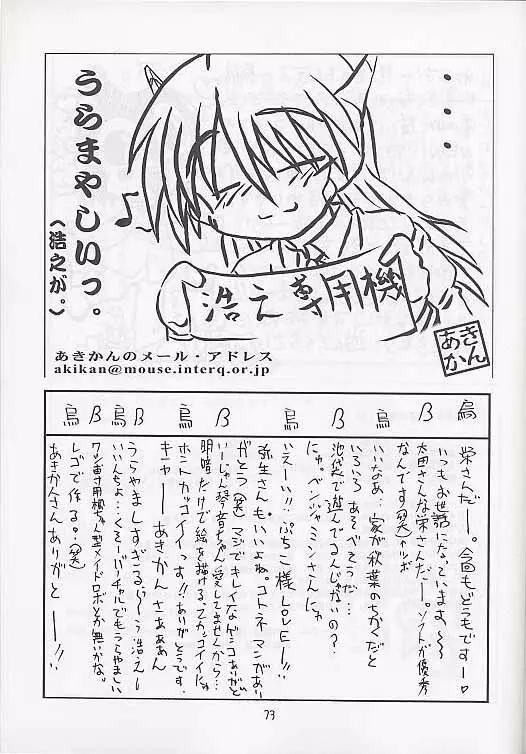 ・・・
うらまやしいっ。
(浩之が。)
♪
浩之専用機
あきかん
あきかんのメール・アドレス
akikan@mouse.interq.or.jp
烏 β 烏 β 烏 β 烏 β 烏
栄さんだー。今回もどうもですー♡
いつもお世話になっています、～～
太田さんな栄さんだー。ソフトが優秀
なんです(笑)ツボ
いいなあ、家が秋葉のちかくだと
いろいろあそべそうだ…
池袋で遊んでるんじゃないの?
にゃ。ベンジャミンさんにゃ
いえーい!!ぷちこ様LOVEー!!
弥生さんもいいよね。コトネマンがあり
がとう(笑)マジでキレイなゲンコありがと
いーじゃん琴音ちゃん愛してませんから…
明暗だけで絵を描けるってカッコイイにゃ
ホントカッコイーっす!!ありがとうです、
キャーーあきかんさぁぁん
うらやましすぎるぅ～う浩えー
いいんちょ…くそーバーチャルでもうらやましい
ワシ専用機ちゃん型メイドロボとか無いかな。
レゴで作る。(笑)
あきかんさんありがとーー!!
73